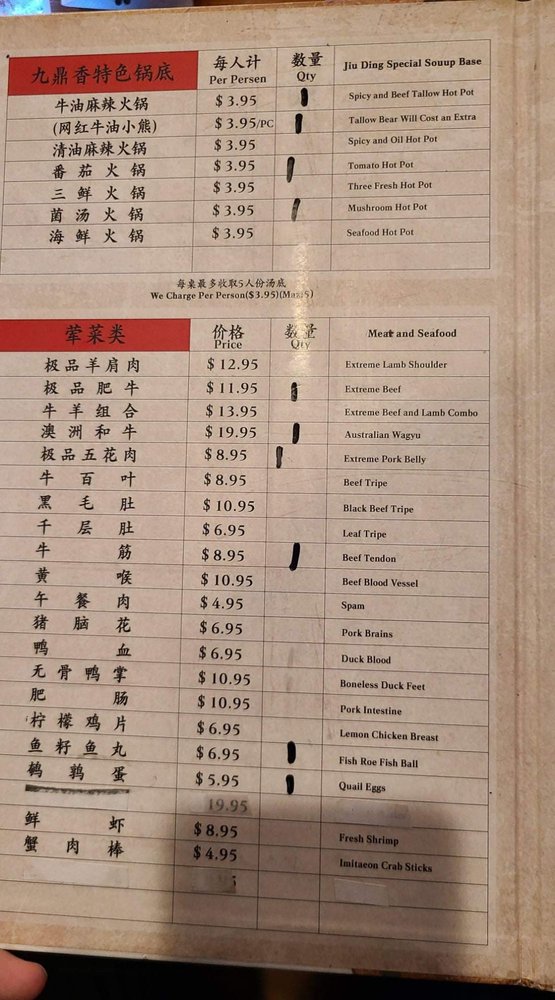 九鼎香特色锅底 每人计 Per Persen 数量 Qty Jiu Ding Special Souup Base
牛油麻辣火锅 $ 3.95 Spicy and Beef Tallow Hot Pot
(网红牛油小熊) $ 3.95/PC Tallow Bear Will Cost an Extra
清油麻辣火锅 $ 3.95 Spicy and Oil Hot Pot
番茄火锅 $ 3.95 Tomato Hot Pot
三鲜火锅 $ 3.95 Three Fresh Hot Pot
菌汤火锅 $ 3.95 Mushroom Hot Pot
海鲜火锅 $ 3.95 Seafood Hot Pot
每桌最多收取5人份汤底
We Charge Per Person($3.95)(Max:5)
荤菜类 价格 Price 数量 Qty Meat and Seafood
极品羊肩肉 $ 12.95 Extreme Lamb Shoulder
极品肥牛 $ 11.95 Extreme Beef
牛羊组合 $ 13.95 Extreme Beef and Lamb Combo
澳洲和牛 $ 19.95 Australian Wagyu
极品五花肉 $ 8.95 Extreme Pork Belly
牛百叶 $ 8.95 Beef Tripe
黑毛肚 $ 10.95 Black Beef Tripe
千层肚 $ 6.95 Leaf Tripe
牛筋 $ 8.95 Beef Tendon
黄喉 $ 10.95 Beef Blood Vessel
午餐肉 $ 4.95 Spam
猪脑花 $ 6.95 Pork Brains
鸭血 $ 6.95 Duck Blood
无骨鸭掌 $ 10.95 Boneless Duck Feet
肥肠 $ 10.95 Pork Intestine
柠檬鸡片 $ 6.95 Lemon Chicken Breast
鱼籽鱼丸 $ 6.95 Fish Roe Fish Ball
鹌鹑蛋 $ 5.95 Quail Eggs
19.95
鲜虾 $ 8.95 Fresh Shrimp
蟹肉棒 $ 4.95 Imitaeon Crab Sticks